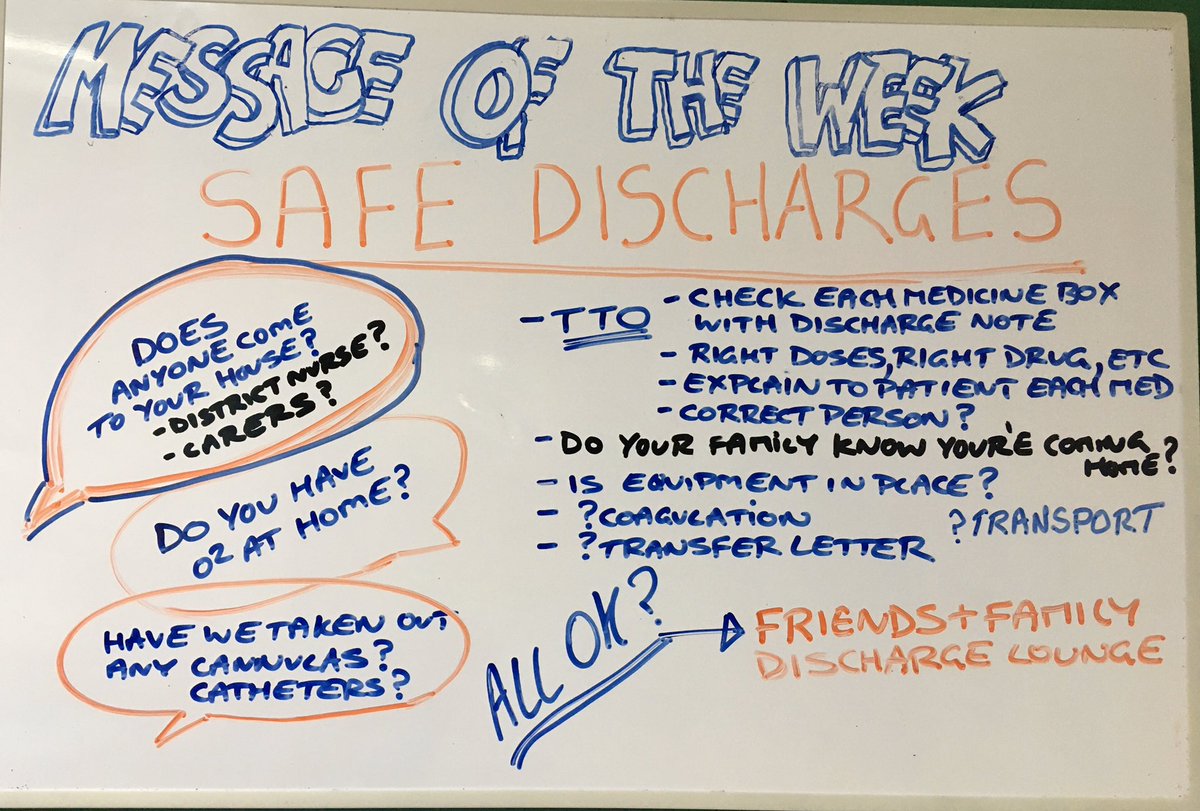 MESSAGE OF THE WEEK
SAFE DISCHARGES
DOES
ANYONE COME
TO YOUR HOUSE?
- DISTRICT NURSE?
- CARERS?
DO YOU HAVE
O2 AT HOME?
HAVE WE TAKEN OUT
ANY CANNULAS?
CATHETERS?
- TTO - CHECK EACH MEDICINE BOX
WITH DISCHARGE NOTE
- RIGHT DOSES, RIGHT DRUG, ETC
- EXPLAIN TO PATIENT EACH MED
- CORRECT PERSON?
- DO YOUR FAMILY KNOW YOUR'E COMING
HOME?
- IS EQUIPMENT IN PLACE?
- ?COAGULATION ?TRANSPORT
- ?TRANSFER LETTER
ALL OK?
FRIENDS + FAMILY
DISCHARGE LOUNGE